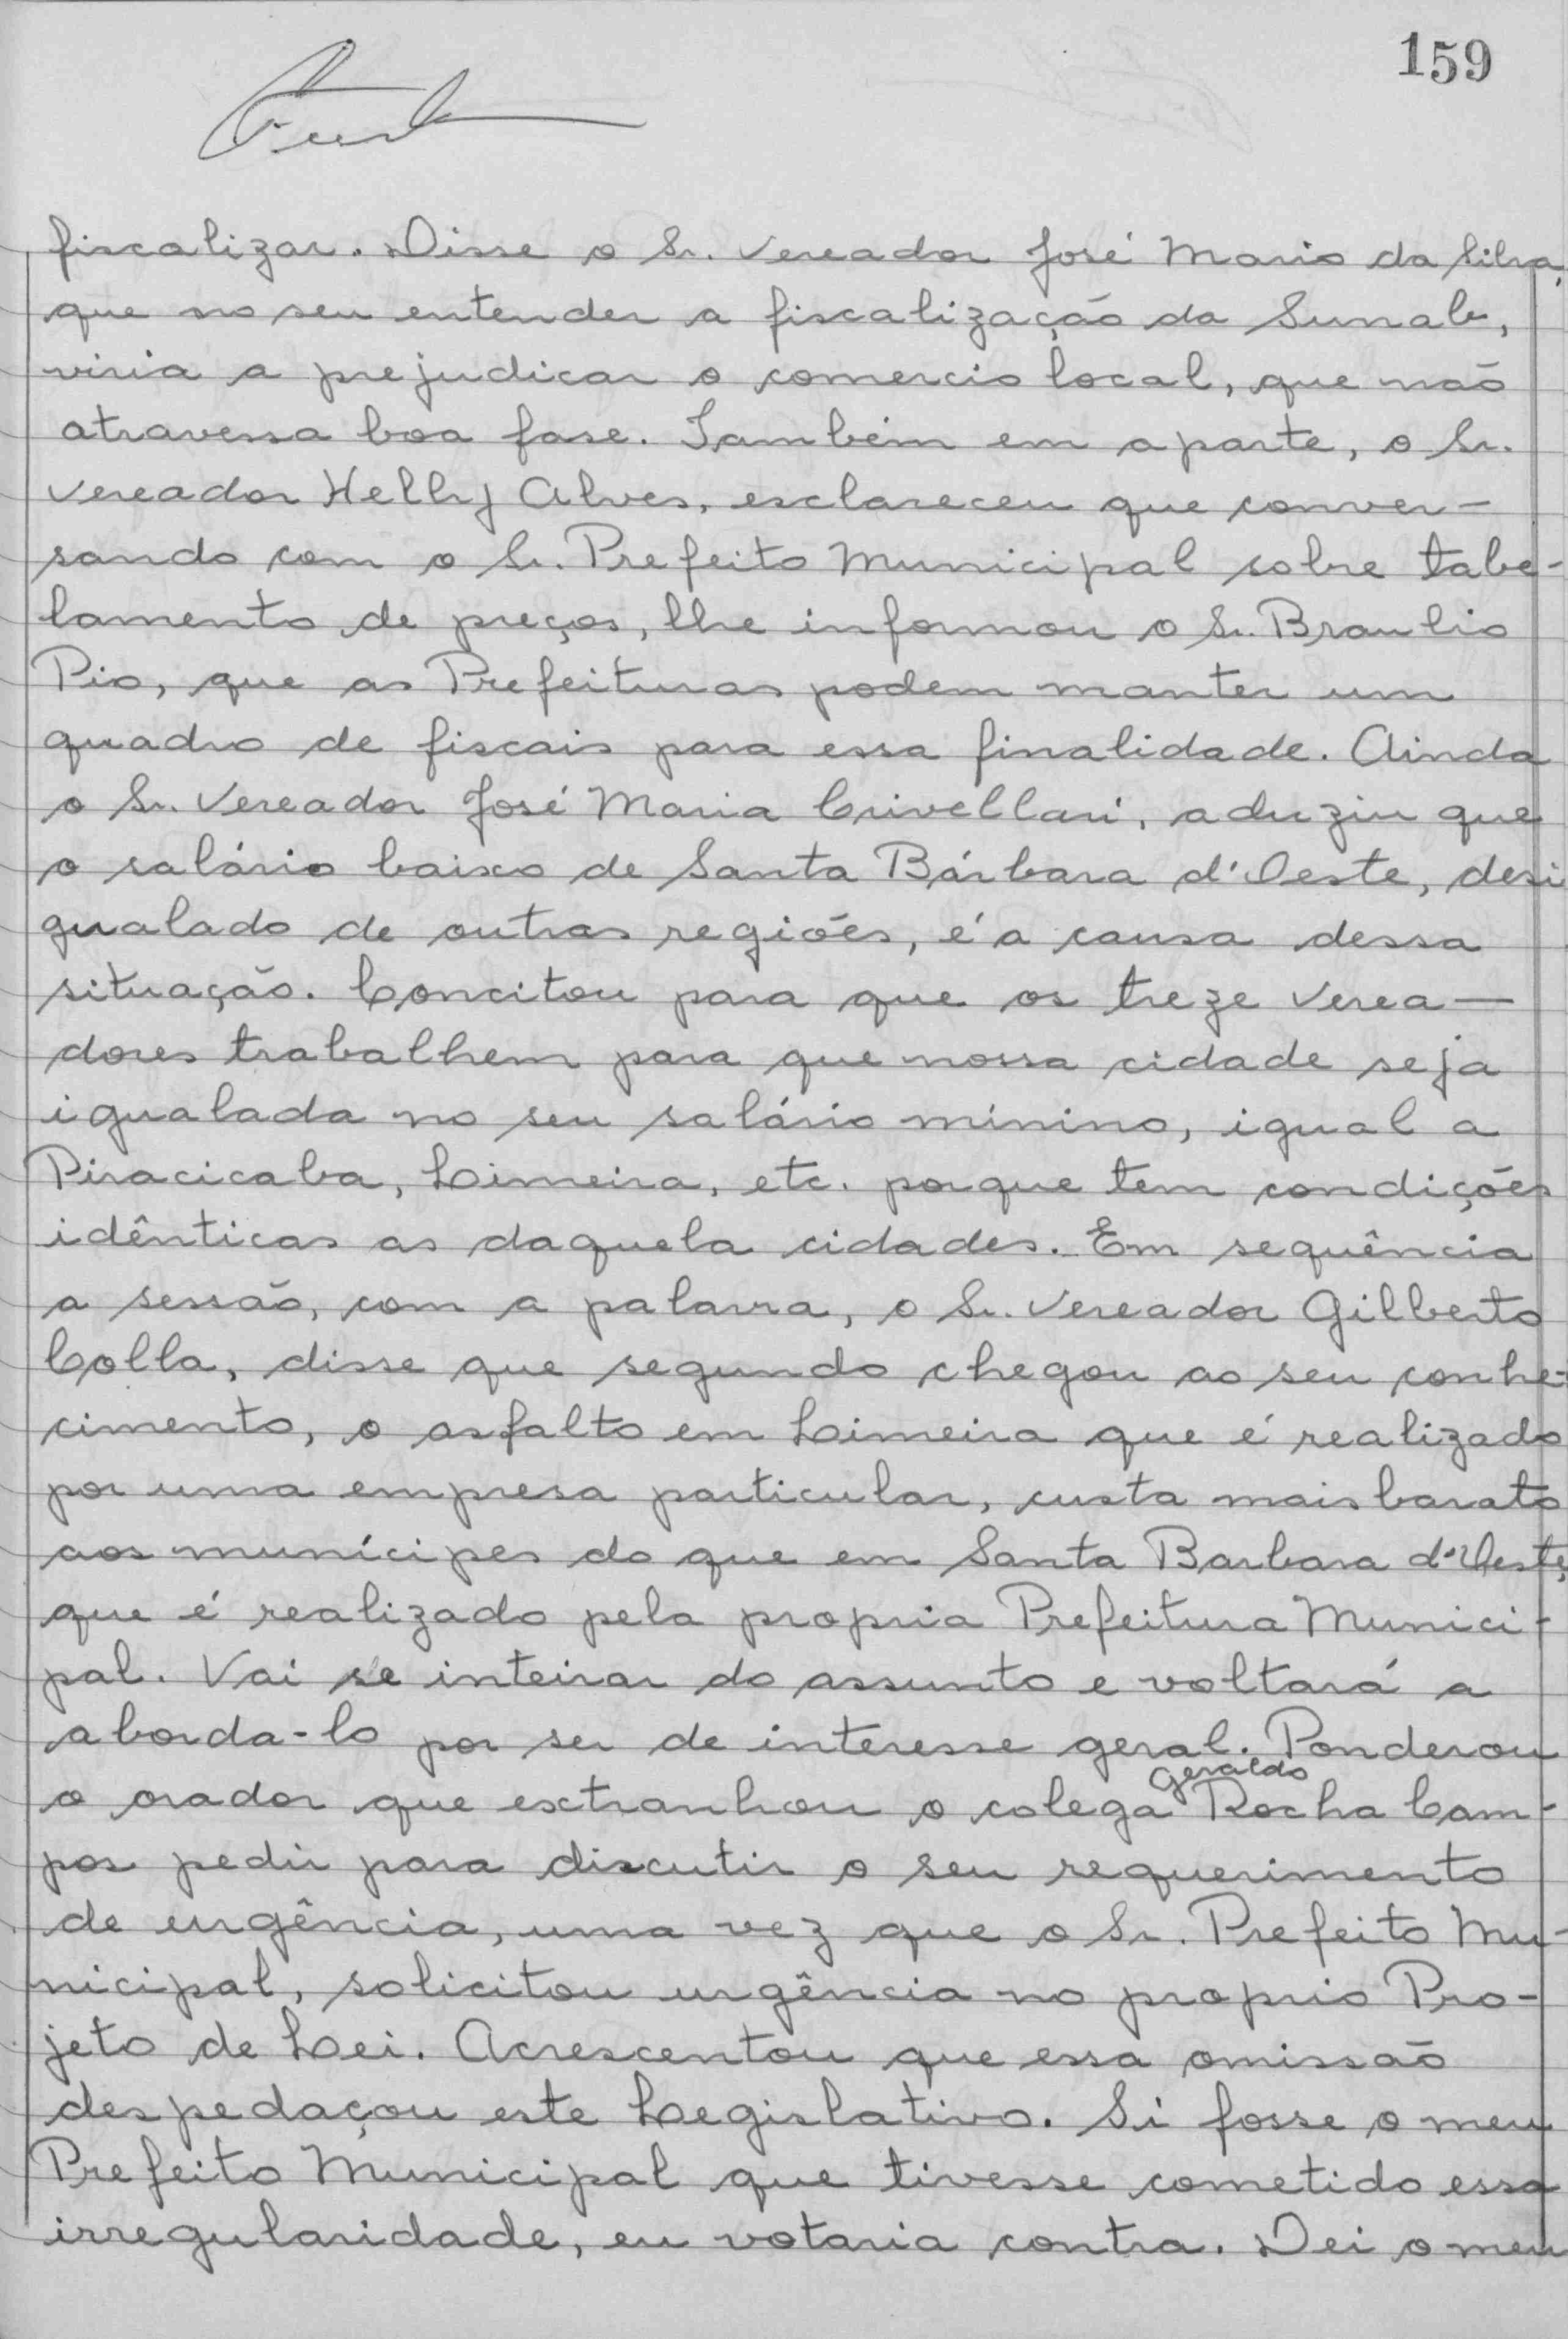 159
fiscalizar. Disse o Sr. Vereador José Maria da Silva,
que no seu entender a fiscalização da Sunab,
viria a prejudicar o comercio local, que não
atravessa boa fase. Também em aparte, o Sr.
Vereador Helly Alves, esclareceu que conver-
sando com o Sr. Prefeito Municipal sobre tabe-
lamento de preços, lhe informou o Sr. Braulio
Pio, que as Prefeituras podem manter um
quadro de fiscais para essa finalidade. Ainda
o Sr. Vereador José Maria Crivellari, aduziu que
o salário baixo de Santa Bárbara d'Oeste, desi
gualado de outras regiões, é a causa dessa
situação. Concitou para que os treze verea-
dores trabalhem para que nossa cidade seja
igualada no seu salário mínino, igual a
Piracicaba, Limeira, etc. porque tem condições
idênticas as daquela cidades. Em sequência
a sessão, com a palavra, o Sr. Vereador Gilberto
Colla, disse que segundo chegou ao seu conhe-
cimento, o asfalto em Limeira que é realizado
por uma empresa particular, custa mais barato
aos munícipes do que em Santa Barbara d'Oeste,
que é realizado pela propria Prefeitura Munici-
pal. Vai se inteirar do assunto e voltará a
aborda-lo por ser de interesse geral. Ponderou
o orador que extranhou o colega Geraldo Rocha Cam-
pos pedir para discutir o seu requerimento
de urgência, uma vez que o Sr. Prefeito Mu-
nicipal, solicitou urgência no proprio Pro-
jeto de Lei. Acrescentou que essa omissão
despedaçou este Legislativo. Si fosse o meu
Prefeito Municipal que tivesse cometido essa
irregularidade, eu votaria contra. Dei o meu